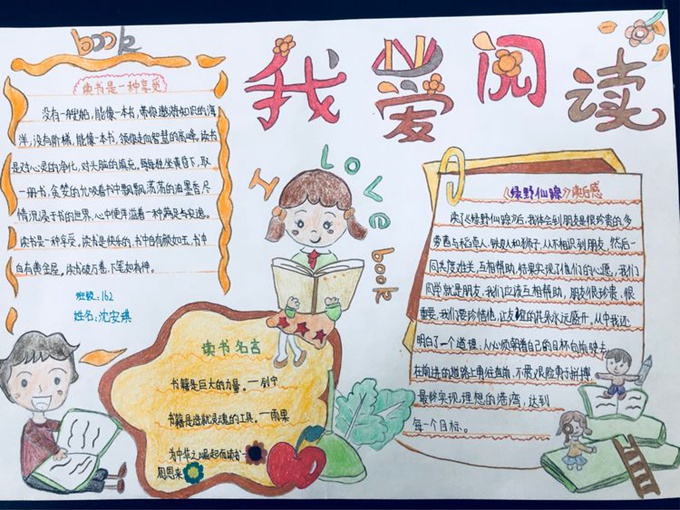 book
我爱阅读
I LOVE book
读书是一种享受
没有一艘船,能像一本书,带你遨游知识的海
洋,没有阶梯,能像一本书,领你走向智慧的高峰。读书
是对心灵的净化,对大脑的填充。每每挑坐黄昏下,取
一册书,贪婪的允吸着书中飘飘荡荡的油墨香,尽
情沉浸于书的世界,心中便洋溢着一种满足与安逸。
读书是一种享受。读书是快乐的,书中自有颜如玉,书中
自有黄金屋。读书破万卷,下笔如有神。
班级:162
姓名:沈安琪
读书名言
书籍是巨大的力量。—列宁
书籍是造就灵魂的工具。—雨果
为中华之崛起而读书—
周恩来
《绿野仙踪》读后感
读《绿野仙踪》后,我体会到朋友是很珍贵的,多
萝茜与稻草人、铁皮人和狮子,从不相识到朋友,然后一
同共度难关,互相帮助,结果实现了他们的心愿,我们
同学就是朋友,我们应该互相帮助,朋友很珍贵,很
重要,我们要珍惜他,让友谊的花朵永远盛开。从中我还
明白了一个道理:人必须朝着自己的目标向前驶去
在前进的道路上勇往直前,不畏艰险勇于拼搏
最终实现理想的港湾,达到
每一个目标。